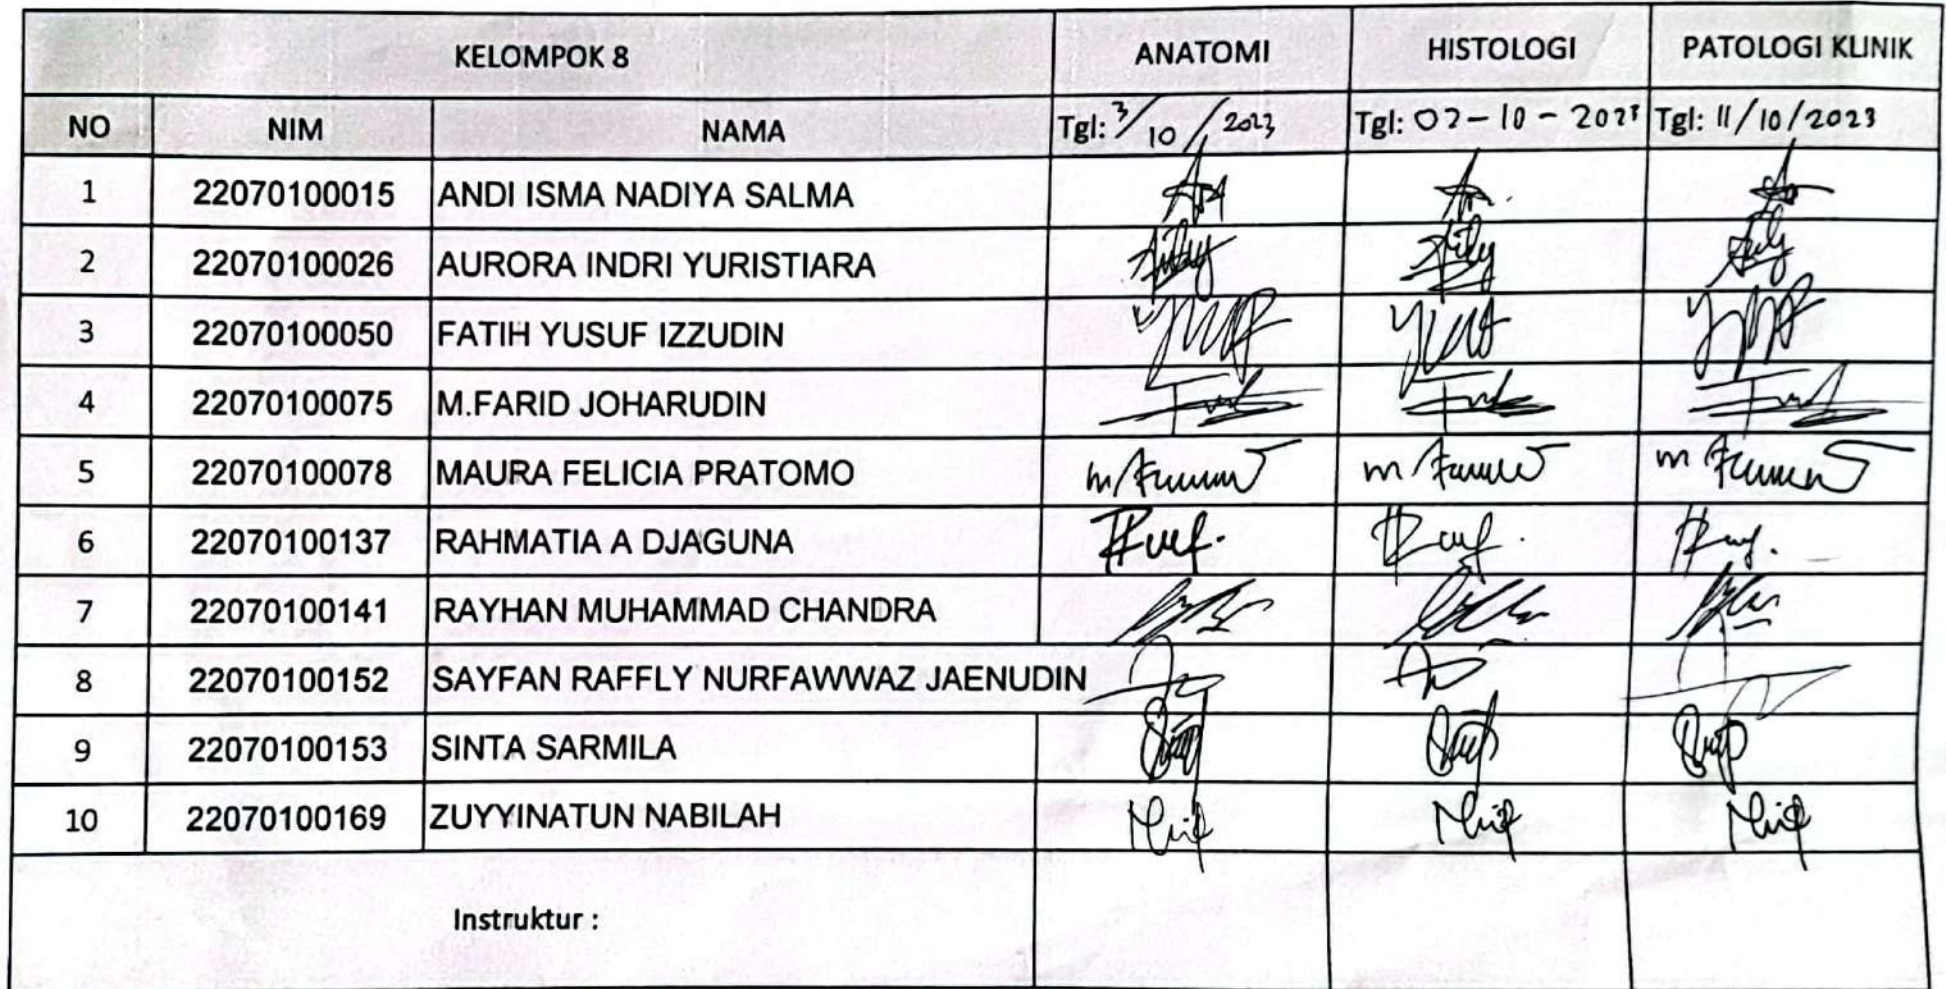 KELOMPOK 8 ANATOMI HISTOLOGI PATOLOGI KLINIK
NO NIM NAMA Tgl: 3/10/2023 Tgl: 02-10-2023 Tgl: 11/10/2023
1 22070100015 ANDI ISMA NADIYA SALMA
2 22070100026 AURORA INDRI YURISTIARA
3 22070100050 FATIH YUSUF IZZUDIN
4 22070100075 M.FARID JOHARUDIN
5 22070100078 MAURA FELICIA PRATOMO
6 22070100137 RAHMATIA A DJAGUNA
7 22070100141 RAYHAN MUHAMMAD CHANDRA
8 22070100152 SAYFAN RAFFLY NURFAWWAZ JAENUDIN
9 22070100153 SINTA SARMILA
10 22070100169 ZUYYINATUN NABILAH
Instruktur :